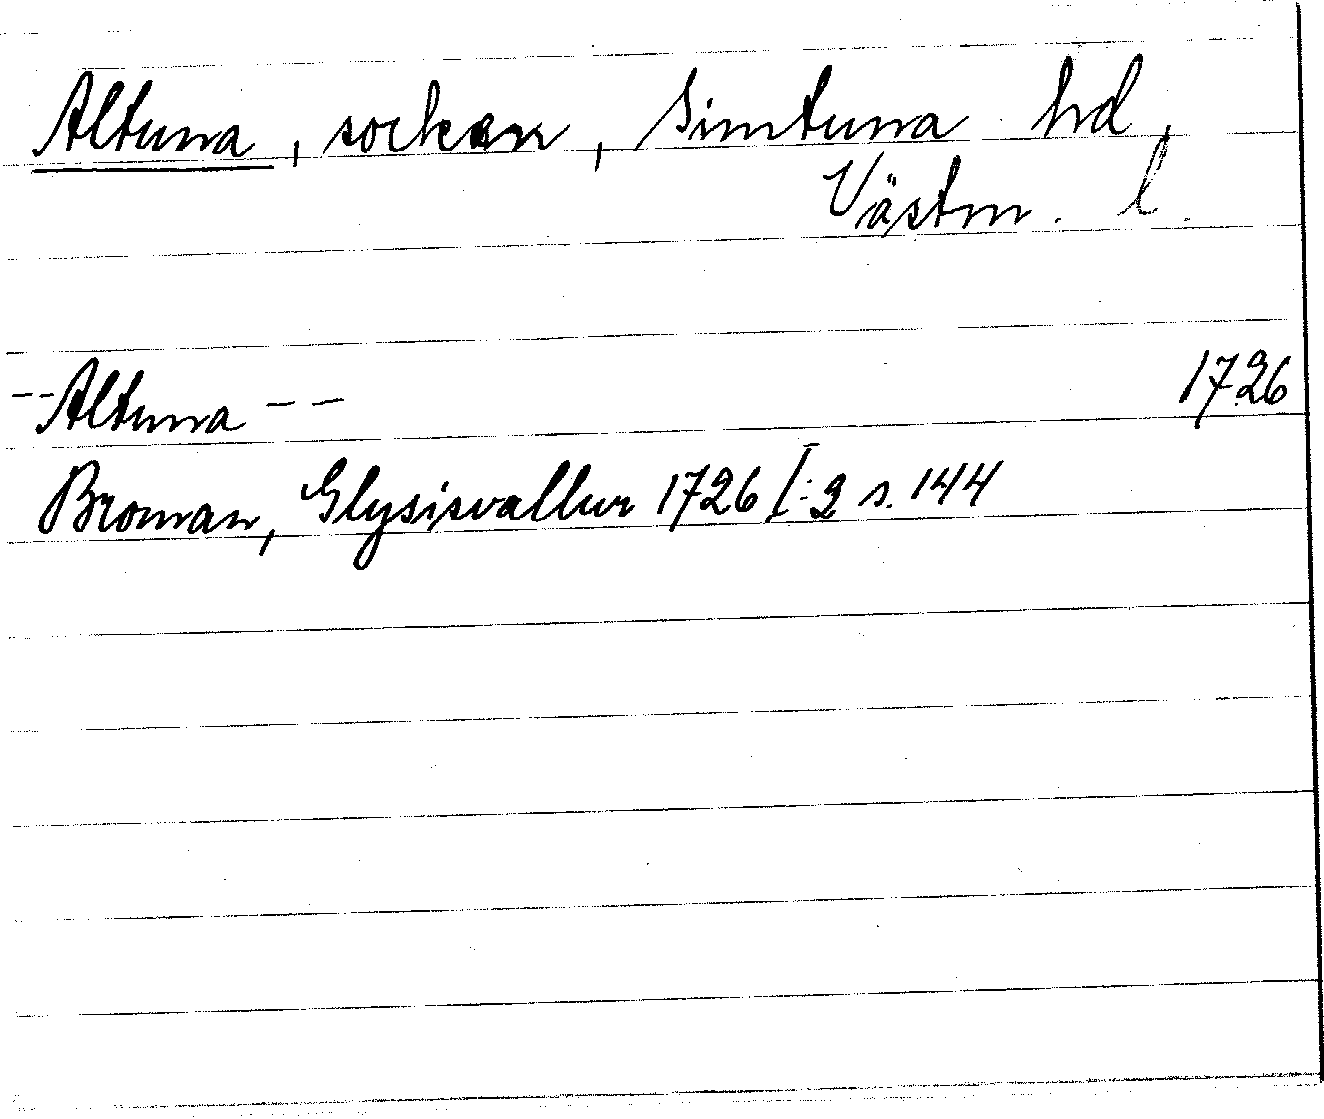 Altuna, socken, Simtuna hd,
Västm. l.
--Altuna -- 1726
Broman, Glysisvallur 1726 I:2 s. 144